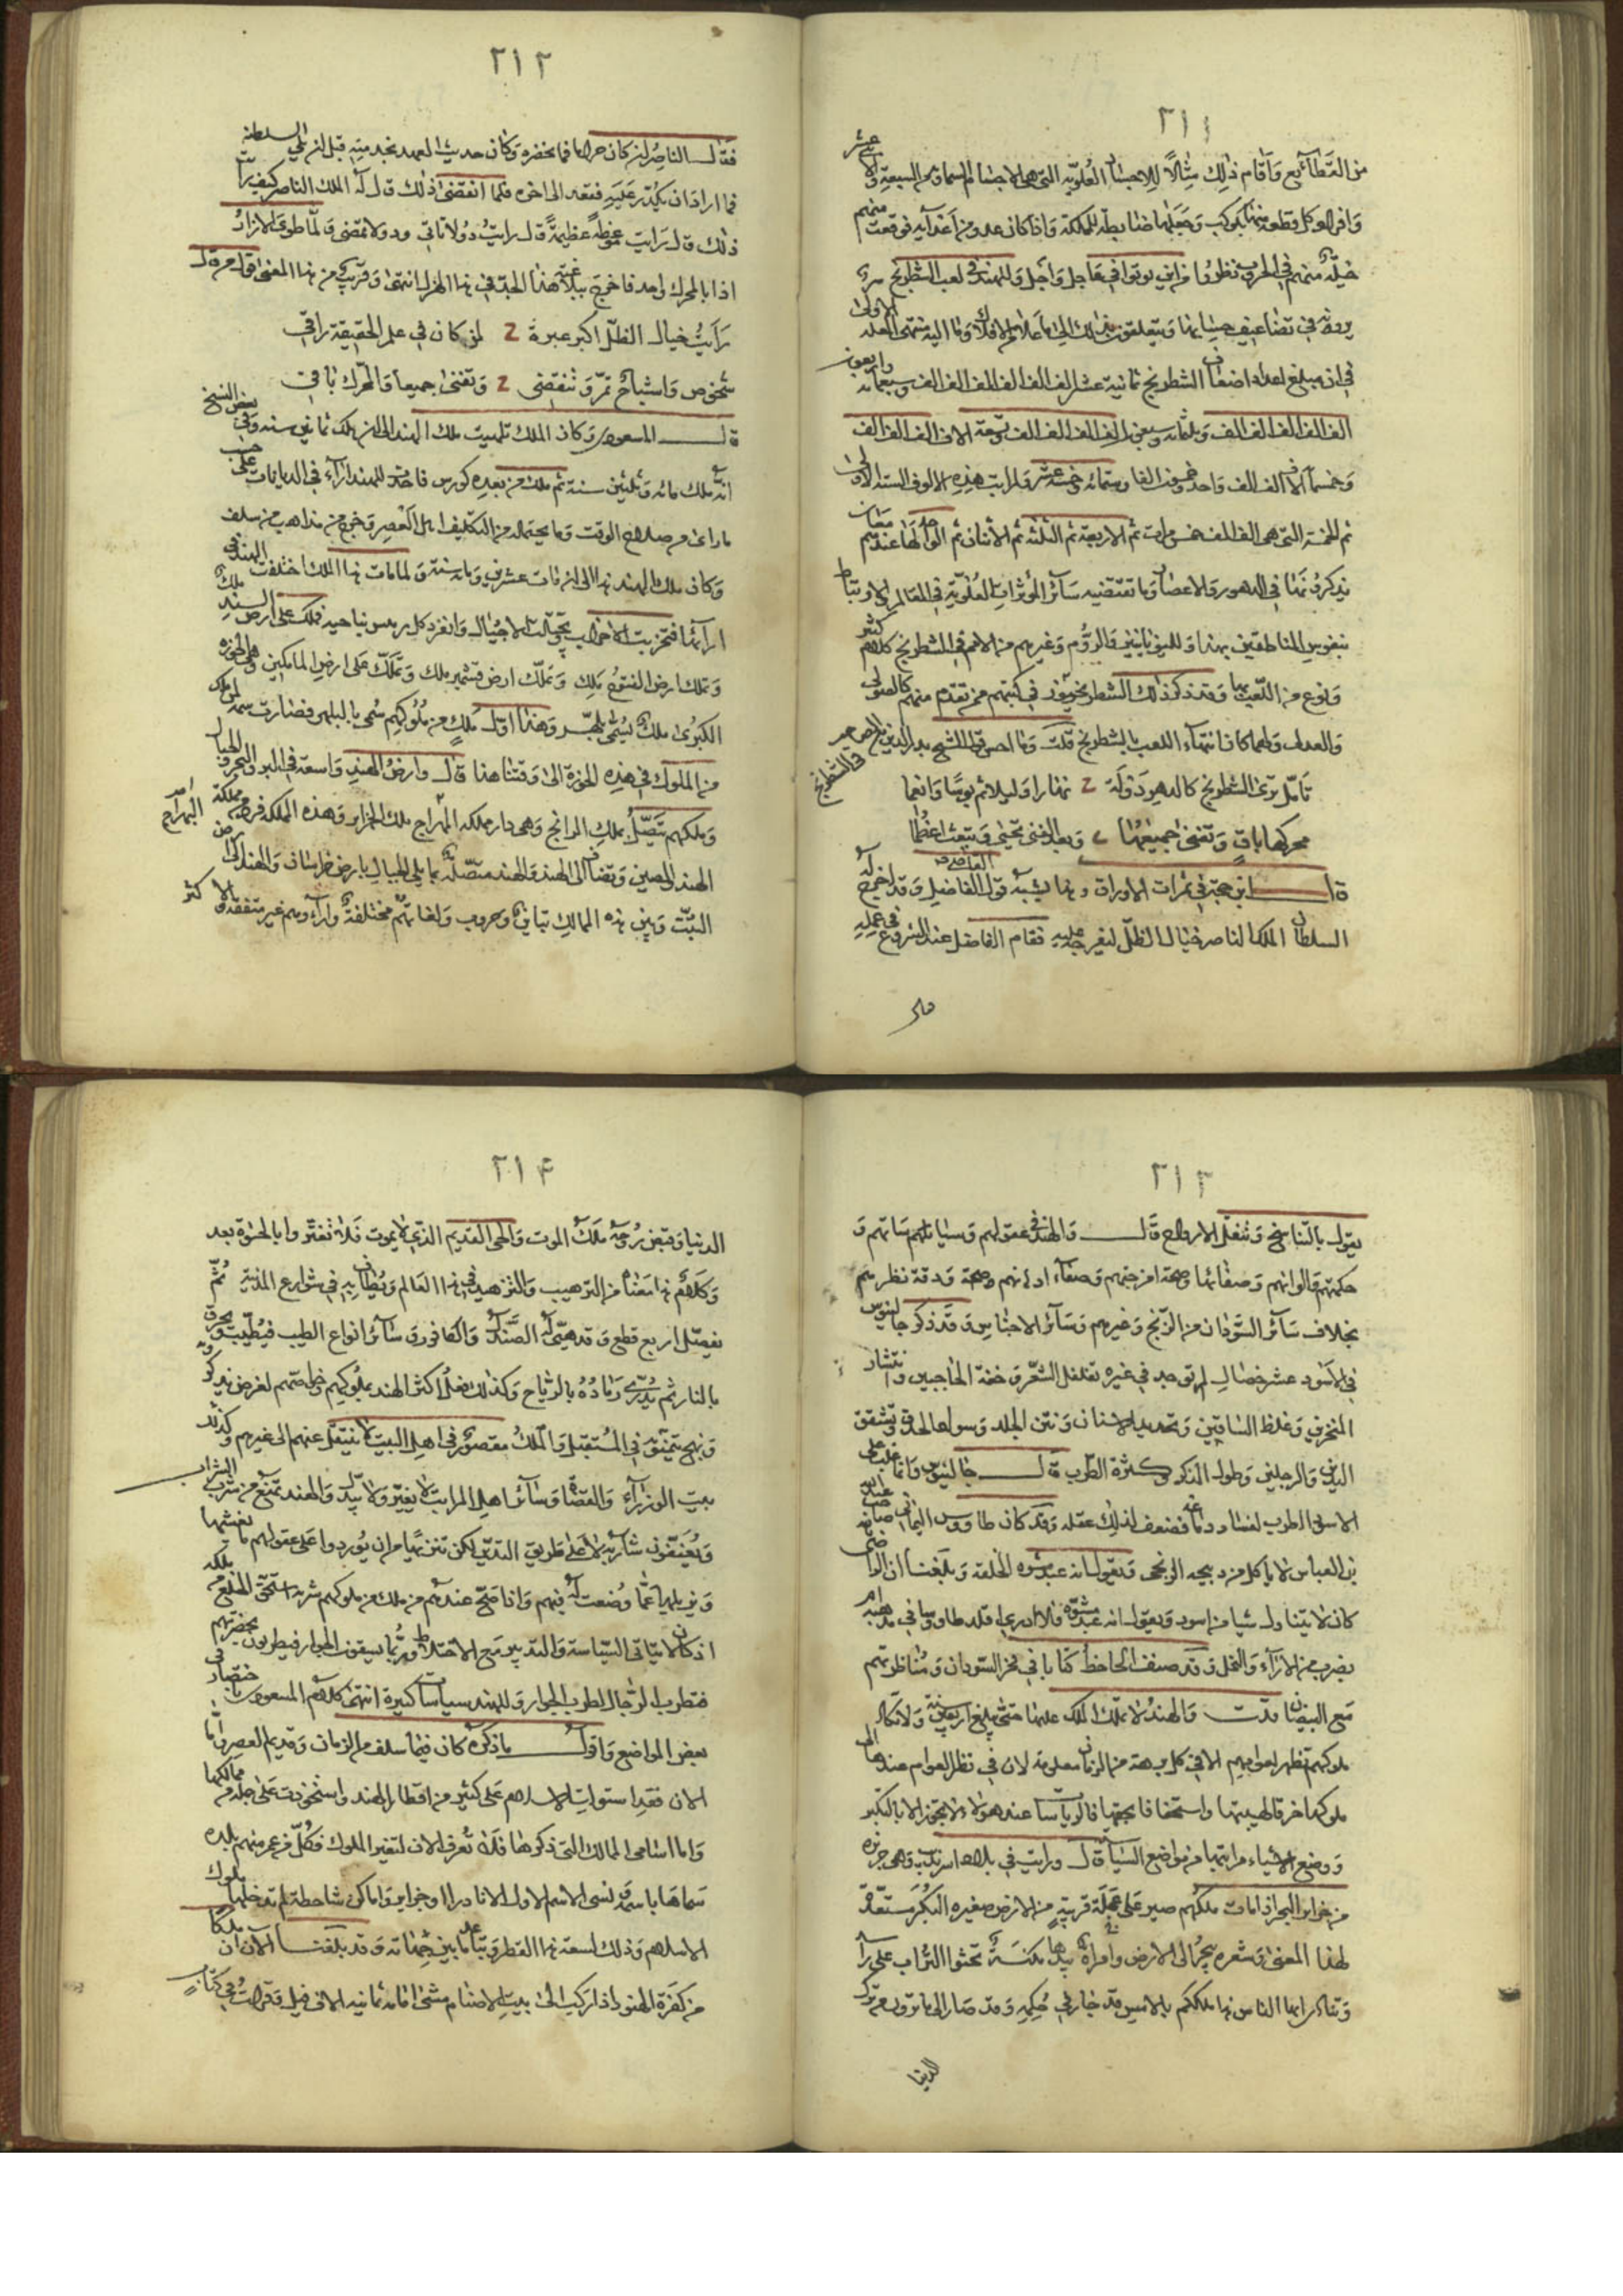 ٢١١
من القطائع واقام ذلك مثالا للاجسام العلوية التي هي الاجسام السماوية من السبعة والاثني عشر
وافرد كل قطعة منها بكوكب وجعلها ضابطة للمملكة واذا كان عدو من اعدائه فوقعت منهم
حيلة منهم في الحروب نظروا من اين يوتوا في عاجل وآجل وللهند في لعب الشطرنج سر
يرونه في تضاعيف حسابها ويتغلغلون بذلك الى ما علا من الافلاك وما اليه منتهى العلة الاولى
في ان مبلغ اعداد اضعاف الشطرنج ثمانية عشر الف الف الف الف الف الف واربعون وسبعمائة
الف الف الف الف الف وثلثمائة وسبعون الف الف الف الف تسعة الاف الف الف الف
وخمسمائة الف الف واحد وخمسون الفا وستمائة وخمسة عشر ولمراتب هذه الالوف الستة الاولى
ثم الخمسة التي هي الف الف خمس مرات ثم الاربعة ثم الثلثة ثم الاثنان ثم الواحد لها عندهم معان
يذكرونها في الدهور والاعصار وما تقتضيه سائر المؤثرات العلوية في العالم لارتباط
نفوس الناطقين بهذا ولليونانيين والروم وغيرهم من الامم في الشطرنج كلام كثير
ونوع من اللعب بها وقد ذكر ذلك الشطرنجيون في كتبهم ممن تقدم منهم كالصولى
والعدلى وعليهما كان انتهاء اللعب بالشطرنج قلت وما احسن قول الشيخ بدر الدين في الشطرنج
تامل ترى الشطرنج كالدهر دولة نهارا وليلا ثم بوسا وانعما
محركها باق وتفنى جميعها وبعد الفنا تحيى وتبعث اعظما
قال ابن حجة في ثمرات الاوراق وهذا يشبه قول القاضى الفاضل وقد اخرج له
السلطان الملك الناصر خيال الظل ليفرجه عليه فقام الفاضل عند الشروع في عمله
٢١٢
فقال الناصر ان كان حراما فما نحضره وكان حديث العهد بخدمته قبل ان يلي السلطنة
فما اراد ان يكدر عليه فقعد الى اخره فلما انقضى ذلك قال له الملك الناصر كيف رأيت
ذلك قال رايت موعظة عظيمة قال رايت دولا تاتي ودولا تمضى ولما طوى الازار
اذا بالمحرك واحد فاخرج ببلاغته هذا الجد في هذا الهزل انتهى وقريب من هذا المعنى قول من قال
رأيت خيال الظل اكبر عبرة لمن كان في علم الحقيقة راقى
شخوص واشباح تمر وتنقضى وتفنى جميعا والمحرك باقى
قال المسعودي وكان الملك بلهيت ملك الهند الى ان هلك ثمانين سنة وفي بعض النسخ
انه ملك مائه وثلثين سنة ثم ملك من بعده كورس فاحدث للهند اراء في الديانات على حسب
ما راى من صلاح الوقت وما يحتمله من التكليف اهل العصر وخرج من مذاهب من سلف
وكان ملك الهند هذا الى ان مات عشرين ومائة سنة ولما مات هذا الملك اختلفت الهند في
ارآئها فتحزبت الاحزاب وتجيلت الاجيال وانفرد كل رئيس بناحيته فملك على ارض السند ملك
وتملك ارض القنوج ملك وتملك ارض قشمير ملك وتملك على ارض المانكير وهي الحوزة
الكبرى ملك يسمى بلهرا وهذا اول ملك من ملوكهم سمى بالبلهرا فصارت سمة لمن ملك
من الملوك في هذه الحوزة الى وقتنا هذا قال وارض الهند واسعة في البر والبحر والجبال
وملكهم يتصل بملك الزانج وهي دار مملكة المهراج ملك الجزاير وهذه المملكة فرز بين مملكة
الهند والصين وتضاف الى الهند والهند متصلة مما يلي الجبال بارض خراسان والسند الى ارض
التبت وبين هذه الممالك تباين وحروب ولغاتهم مختلفة وآراءهم غير متفقة والاكثر
٢١٣
يقول بالتناسخ وتنقل الارواح قال والهند في عقولهم وسياساتهم و
حكمتهم والوانهم وصفاتها وصحة امزجتهم وصفاء اذهانهم وصحة ودقة نظرهم
بخلاف سائر السودان من الزنج وغيرهم وسائر الاجناس وقد ذكر جالينوس
في الاسود عشر خصال لم توجد في غيره تفلفل الشعر وخفة الحاجبين وانتشار
المنخرين وغلظ الشفتين وتحديد الاسنان ونتن الجلد وسواد الحدق وتشقق
اليدين والرجلين وطول الذكر وكثرة الطرب قال جالينوس وانما غلب على
الاسود الطرب لفساد دماغه فضعف لذلك عقله وقد كان طاووس اليماني صاحب عبد الله
بن العباس لا ياكل من ذبيحة الزنجى ويقول انه عبد مشوه الخلقة وبلغنا ان الراضى
كان لا يتناول شيا من اسود ويقول انه عبد مشوه فلا ادرى اقلد طاووسا في مذهبه
بضرب من الاراء والنحل وقد صنف الجاحظ كتابا في فخر السودان ومناظرتهم
مع البيضان قلت والهند لا تملك الملك عليها حتى يبلغ اربعين سنة ولا تكاد
ملوكهم تظهر لعوامهم الا في كل برهة من الزمان معلومة لان في نظر العوام عندها الى
ملوكها خرقا لهيبتها واستخفافا بحقها والرياسات عند هؤلاء لا تجوز الا بالتكبر
ووضع الاشياء مراتبها من مواضع السياسة قال ورايت في بلاد سرنديب وهي جزيره
من جزاير البحر اذا مات ملكهم صير على عجلة قريبة من الارض صغيره البكر مستعدة
لهذا المعنى وشعره يجر الى الارض وامراة بيدها مكنسة تحثوا التراب على راسه
وتنادى ايها الناس هذا ملككم بالامس قد جاز فيكم حكمه وقد صار الى ما ترون من ترك
الدنيا
٢١٤
الدنيا وقبض روحه ملك الموت والحى القديم الذى لا يموت فلا تغتروا بالحيوة بعده
وكلام هذا معناه من الترهيب والتزهيد في هذا العالم ويطاف به في شوارع المدينة ثم
يفصل اربع قطع وقد هيئ له الصندل والكافور وسائر انواع الطيب فيطيب ويحرق
بالنار ثم يذرى رماده بالرياح وكذلك فعل اكثر الهند بملوكهم وخواصهم لغرض يذكرونه
ونهج يتيممونه في المستقبل والملك مقصور في اهل البيت لا ينتقل عنهم الى غيرهم وكذلك
بيت الوزراء والقضاة وسائر اهل المراتب لا يغير ولا يبدل والهند تمنع من شرب الشراب
ويعنفون شاربه لا على طريق التدين لكن تنزها من ان يوردوا على عقولهم ما يغشيها
ويزيلها عما وضعت له فيهم واذا صح عندهم من ملك من ملوكهم شربه استحق الخلع من ملكه
اذ كان لا يتاتى السياسة والتدبير مع الاختلاط وربما يسقون الجوار فيطربون بحضرتهم
فتطرب الرجال لطرب الجوار وللهند سياسات كثيرة انتهى كلام المسعودى باختصار في
بعض المواضع واقول ما ذكره كان فيما سلف من الزمان وقديم العصر واما
الان فقد استولت الاسلام على كثير من اقطار الهند واستحوذت على جلة من ممالكها
واما اسامى الممالك التى ذكرها فلا تعرف الان لتغير الملوك فكل من عمر منهم بلدة
سماها باسمه ونسى الاسم الاول الا نادرا او جزاير واماكن شاحطة لم تدخلها ملوك
الاسلام وذلك لسعة هذا القطر وتباعد ما بين جهاته وقد بلغنا الان ان ملكا
من كفرة الهنود اذا ركب الى بيت الاصنام مشى امامه ثمانية الاف فيل وقرات في كتاب